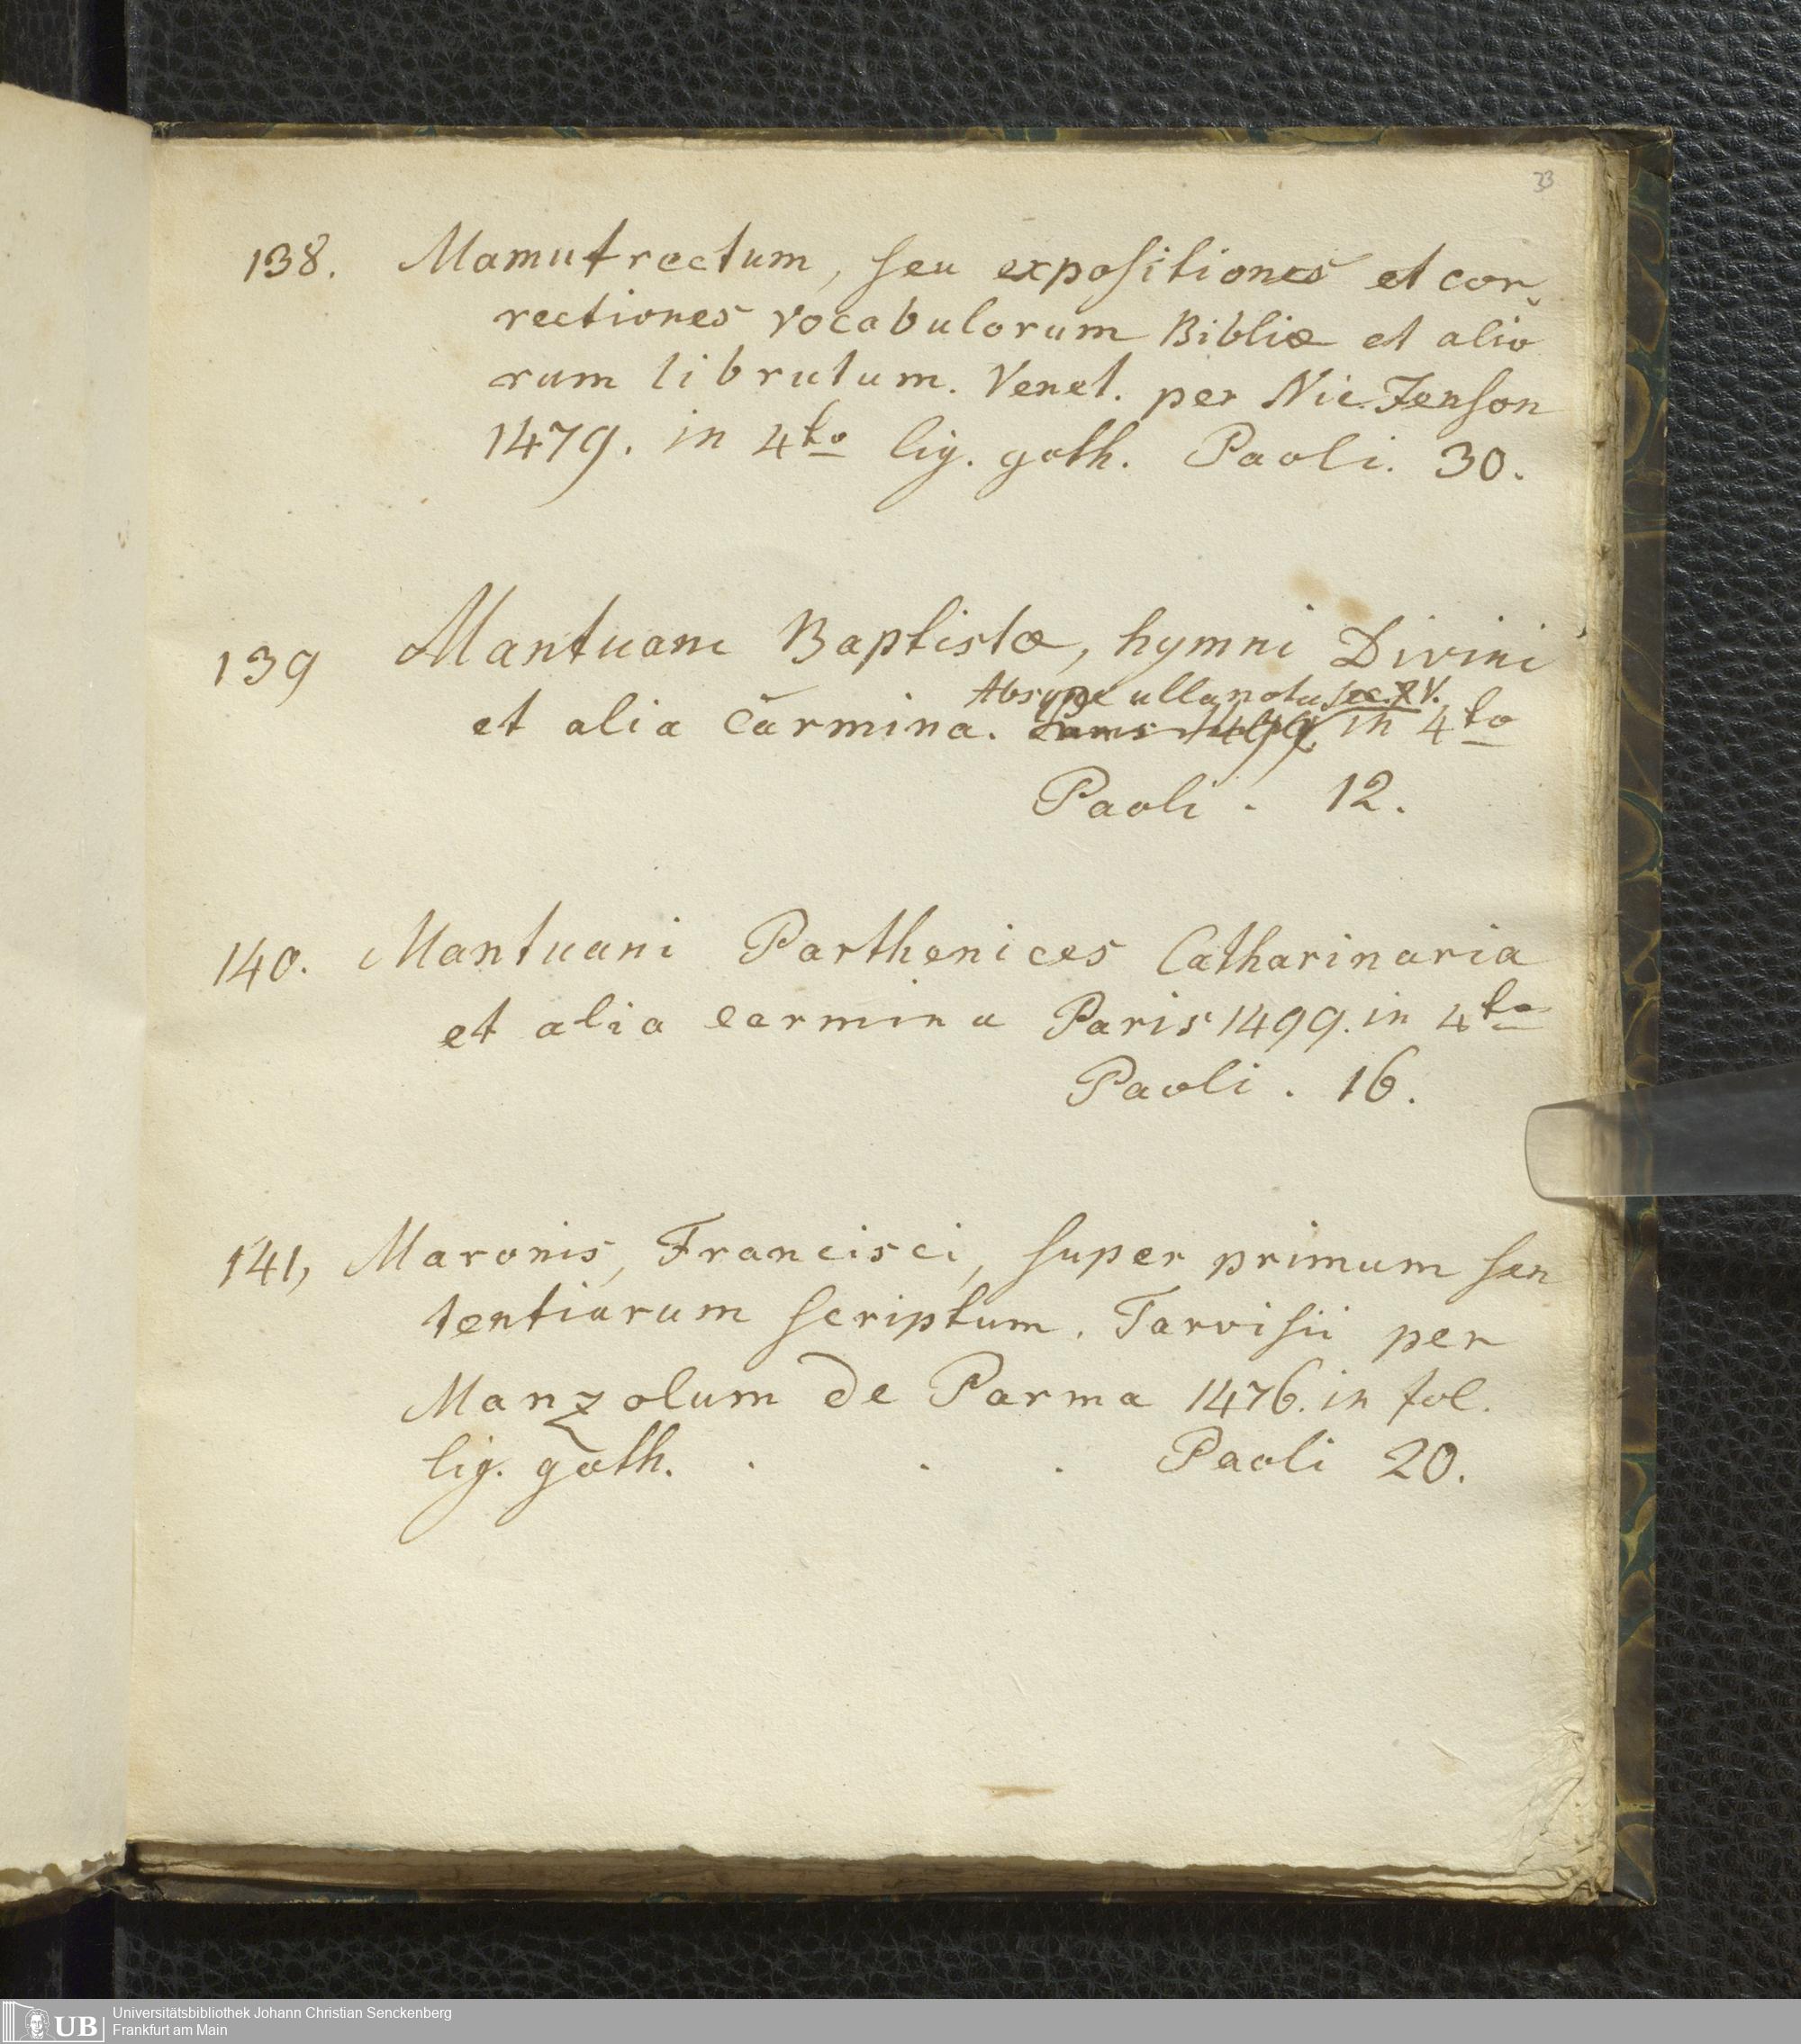 33
138. Mamutrectum, seu expositiones et cor¬
rectiones vocabulorum Bibliæ et alio
rum librutum. Venet. per Nic. Jenson
1479. in 4to lig. goth. Paoli. 30.
139 Mantuani Baptistæ, hymni Divini
Absque ulla nota sec. XV.
et alia Carmina. 1499 in 4to
Paoli. 12.
140. Mantuani Parthenices Catharinaria
et alia carmina Paris 1499. in 4to
Paoli. 16.
141, Maronis, Francisci, super primum sen
tentiarum scriptum. Tarvisii per
Manzolum de Parma 1476. in fol.
lig. goth. . . . Paoli 20.
UB Universitätsbibliothek Johann Christian Senckenberg
Frankfurt am Main